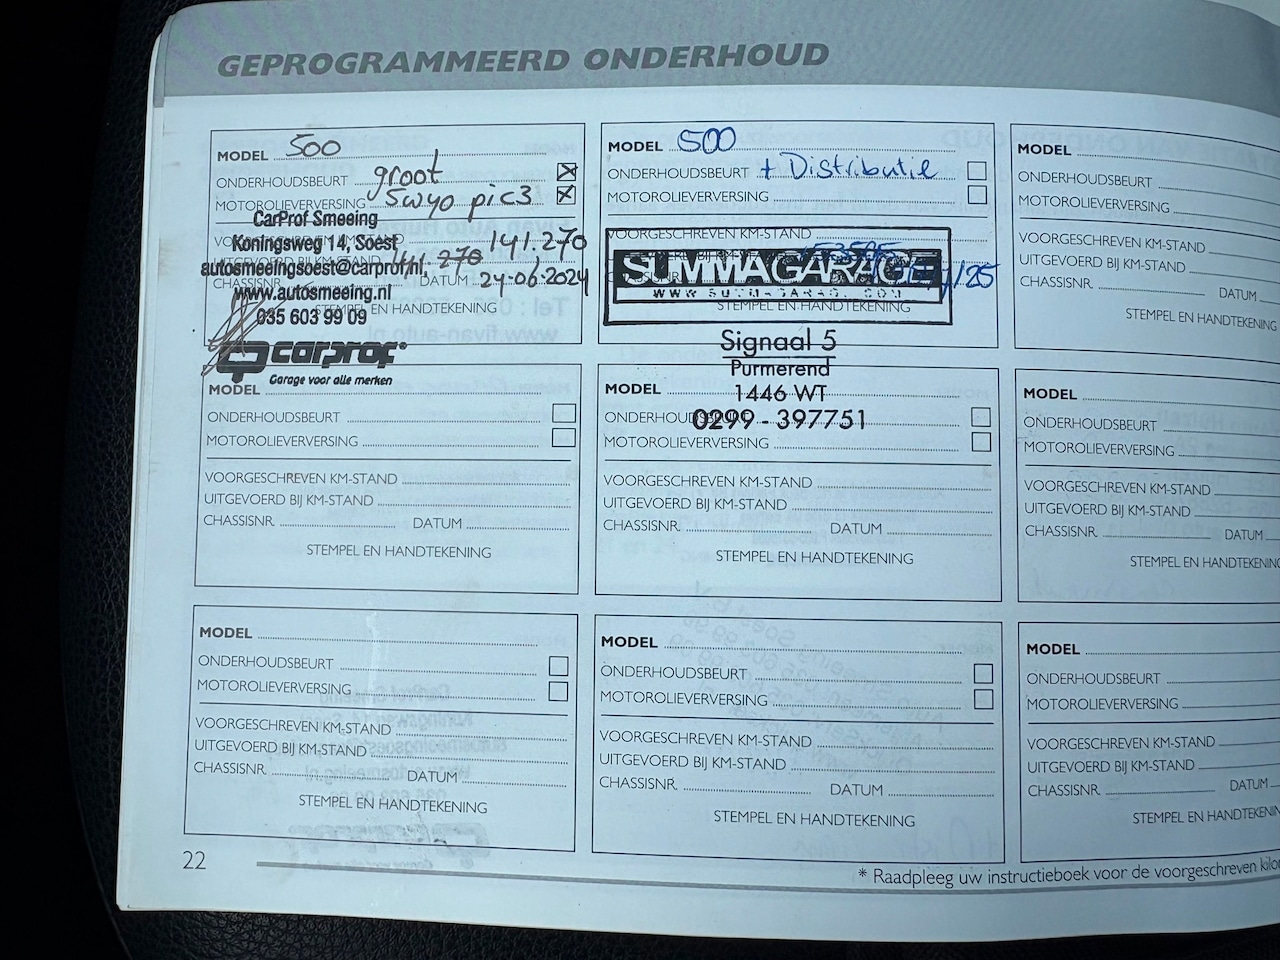 GEPROGRAMMEERD ONDERHOUD
MODEL 500
ONDERHOUDSBEURT groot
MOTOROLIEVERVERSING 5w40 pic3
CarProf Smeeing
Koningsweg 14, Soest
141.270
autosmeeingsoest@carprof.nl,
270
CHASSISNR. DATUM 24-06-2024
www.autosmeeing.nl
STEMPEL EN HANDTEKENING
035 603 99 09
carprof
Garage voor alle merken
MODEL 500
ONDERHOUDSBEURT + Distributie
MOTOROLIEVERVERSING
VOORGESCHREVEN KM-STAND
SUMMAGARAGE
STEMPEL EN HANDTEKENING
Signaal 5
Purmerend
1446 WT
0299 - 397751
MODEL
ONDERHOUDSBEURT
MOTOROLIEVERVERSING
VOORGESCHREVEN KM-STAND
UITGEVOERD BIJ KM-STAND
CHASSISNR. DATUM
STEMPEL EN HANDTEKENING
MODEL
ONDERHOUDSBEURT
MOTOROLIEVERVERSING
VOORGESCHREVEN KM-STAND
UITGEVOERD BIJ KM-STAND
CHASSISNR. DATUM
STEMPEL EN HANDTEKENING
MODEL
ONDERHOUDSBEURT
MOTOROLIEVERVERSING
VOORGESCHREVEN KM-STAND
UITGEVOERD BIJ KM-STAND
CHASSISNR. DATUM
STEMPEL EN HANDTEKENING
MODEL
ONDERHOUDSBEURT
MOTOROLIEVERVERSING
VOORGESCHREVEN KM-STAND
UITGEVOERD BIJ KM-STAND
CHASSISNR. DATUM
STEMPEL EN HANDTEKENING
MODEL
ONDERHOUDSBEURT
MOTOROLIEVERVERSING
VOORGESCHREVEN KM-STAND
UITGEVOERD BIJ KM-STAND
CHASSISNR. DATUM
STEMPEL EN HANDTEKENING
MODEL
ONDERHOUDSBEURT
MOTOROLIEVERVERSING
VOORGESCHREVEN KM-STAND
UITGEVOERD BIJ KM-STAND
CHASSISNR. DATUM
STEMPEL EN HANDTEKENING
MODEL
ONDERHOUDSBEURT
MOTOROLIEVERVERSING
VOORGESCHREVEN KM-STAND
UITGEVOERD BIJ KM-STAND
CHASSISNR. DATUM
STEMPEL EN HANDTEKENIN
22
* Raadpleeg uw instructieboek voor de voorgeschreven kilo